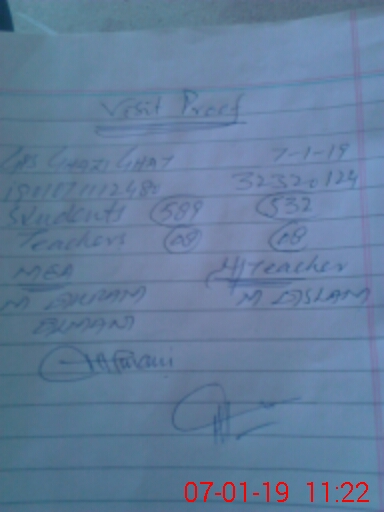 Visit Proof
GPS GHAZI GHAT 7-1-19
32320124
Students 589 532
Teachers 08 08
MEA H/Teacher
M IKRAM M ASLAM
07-01-19 11:22